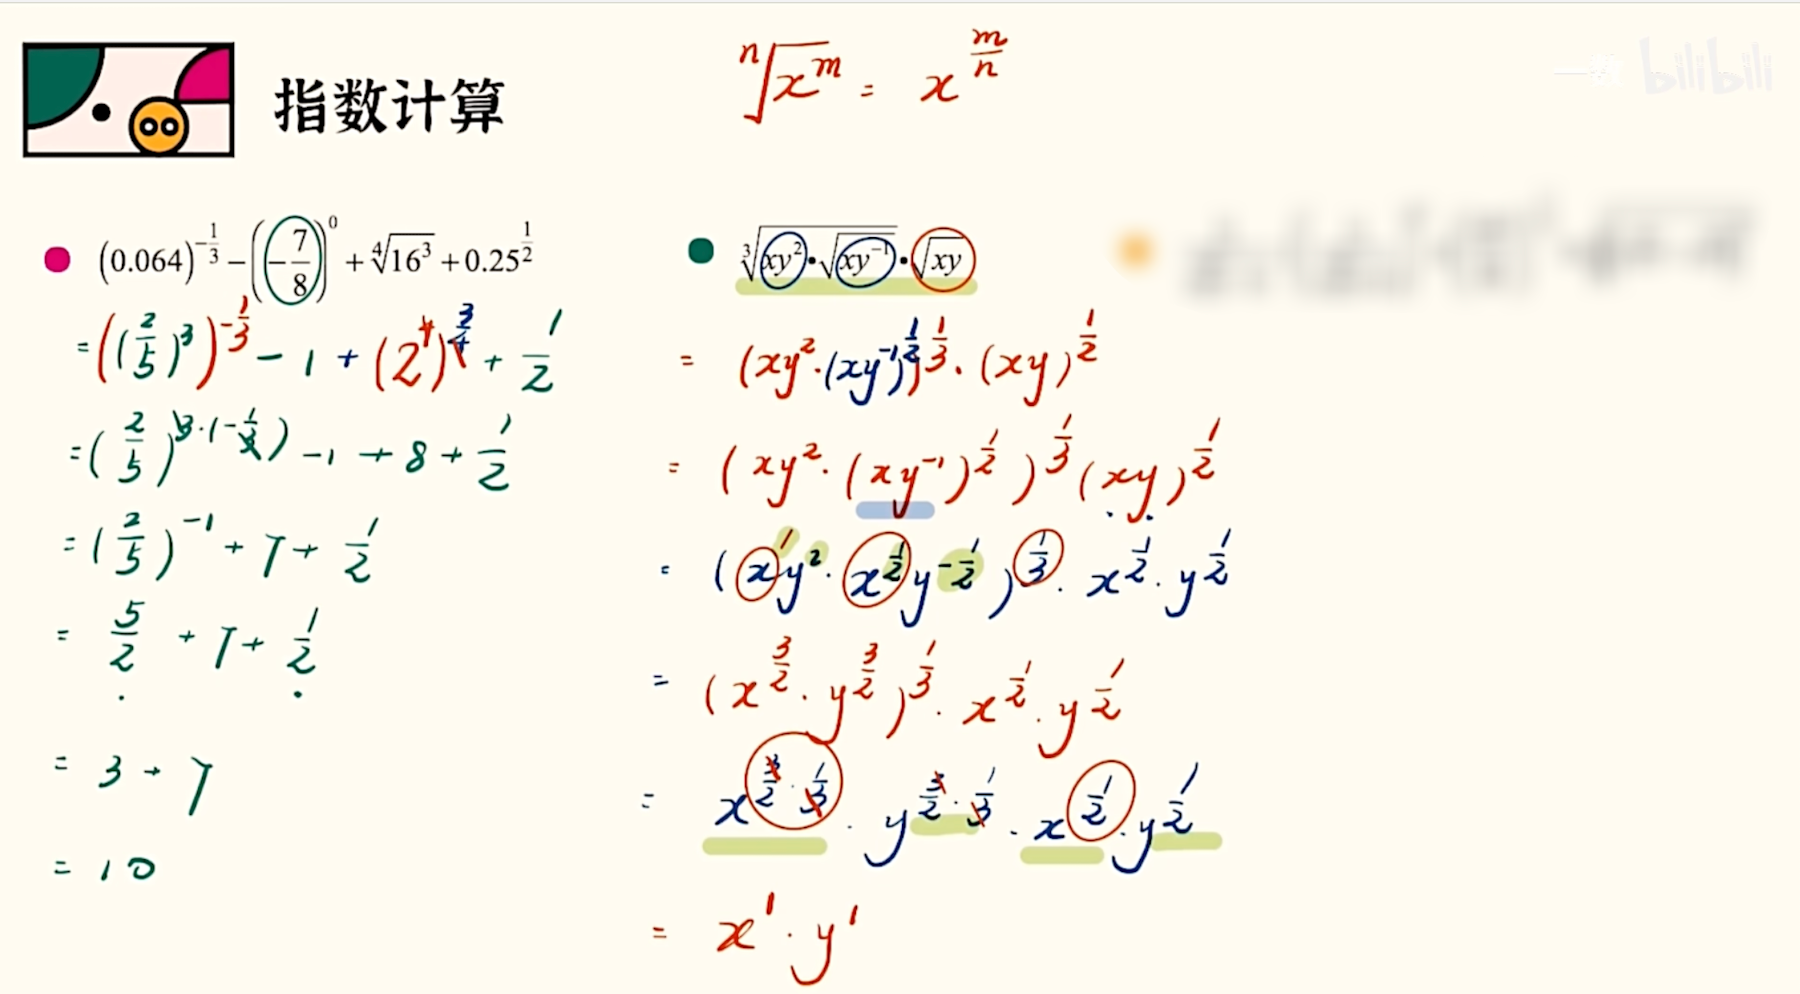 指数计算
ⁿ√(x^m) = x^(m/n)
一数 bilibili
(0.064)^(-1/3) - (-7/8)^0 + ⁴√(16^3) + 0.25^(1/2)
= ((2/5)^3)^(-1/3) - 1 + (2^4)^(3/4) + 1/2
= (2/5)^(3·(-1/3)) - 1 + 8 + 1/2
= (2/5)^(-1) + 7 + 1/2
= 5/2 + 7 + 1/2
= 3 + 7
= 10
³√(xy^2·√(xy^(-1)))·√(xy)
= (xy^2·(xy^(-1))^(1/2))^(1/3)·(xy)^(1/2)
= (xy^2·(xy^(-1))^(1/2))^(1/3) (xy)^(1/2)
= (x^1y^2·x^(1/2)y^(-1/2))^(1/3)·x^(1/2)·y^(1/2)
= (x^(3/2)·y^(3/2))^(1/3)·x^(1/2)·y^(1/2)
= x^(3/2·1/3)·y^(3/2·1/3)·x^(1/2)·y^(1/2)
= x^1·y^1